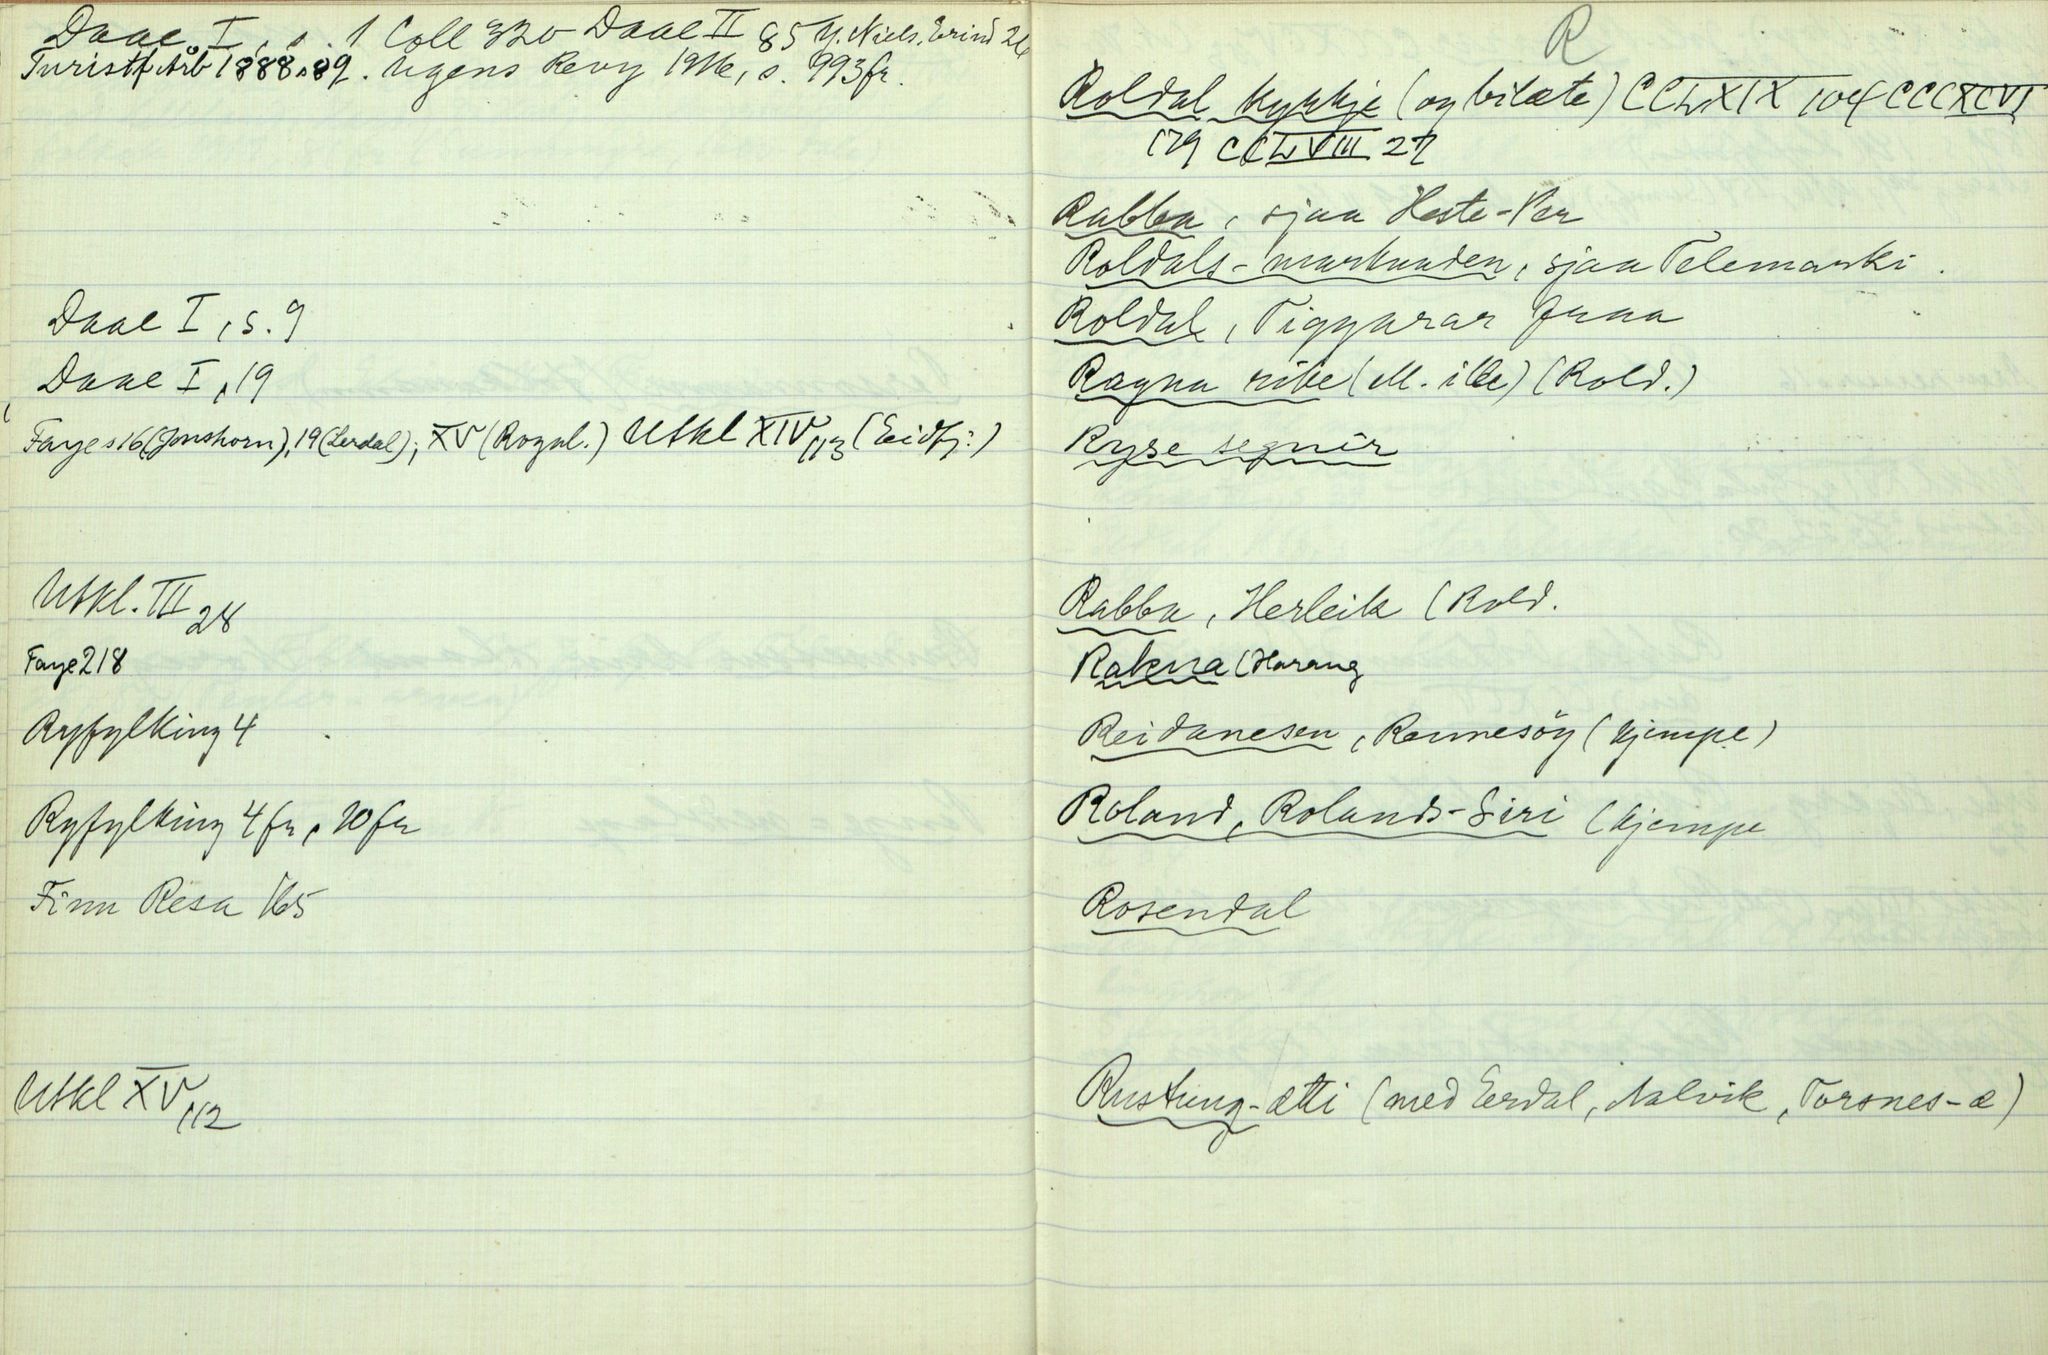 Daae I, s. 1 Coll 320 Daae II 85 Y. Niels. Erind 26
Turistf. Årb 1888 s 89. Ugens Revy 1916, s. 993 fr.
Daae I, s. 9
Daae I, 19
Faye s 16 (Jonshorn), 19 (Lerdal); XV (Rognl.) Utkl XIV 113 (Eidfj.)
Utkl. III 28
Faye 218
Ryfylking 4
Ryfylking 4 fr, 20 fr
Finn Resa 165
Utkl XV 112
R
Roldal kyrkje (og bilæte) CCLXIX 104 CCCXCVI
179 CCLVIII 27
Rabba, sjaa Heste-Per
Roldals-marknaden, sjaa Telemarki.
Roldal, Tiggarar fraa
Ragna rike (M. ille) (Rold.)
Ryse segner
Rabba, Herleik (Rold.
Rakna (Harang
Reidanesen, Rennesöy (kjempe)
Roland, Rolands-Siri (kjempe
Rosendal
Rustung-ætti (med Eerdal, Aalvik, Torsnes-æ)